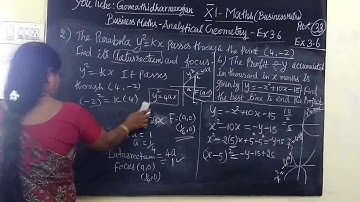 YouTube: Gomathidharmarajan
XI-Maths (Business Maths)
Part (22)
Business Maths-Analytical Geometry - Ex 3.6
Ex 3.6
2) The Parabola y²=kx Passes through the point (4,-2)
Find its latusrectum and focus.
y²=kx It passes
through (4,-2)
(-2)²=k(4)
y²=4ax
a = 1/4
Latusrectum = 4a
focus (a,0)
F=(a,0)
6) The Profit ₹ y accumulated
in thousand in x months is
given by y=-x²+10x-15 find
the best time to end the Project
y=-x²+10x-15
x²-10x=-y-15
x²-2(5)x+5²-5²=-y-15
(x-5)²=-y-15+25